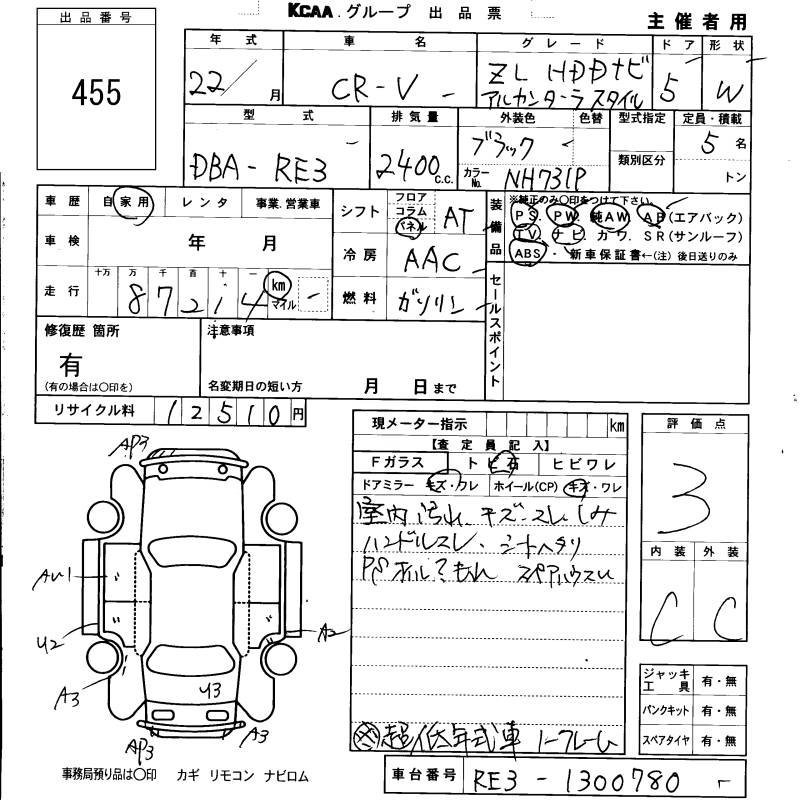 KCAA グループ 出品票
主催者用
出品番号
455
年式 車名 グレード ドア 形状
22/ 月 CR-V ZL HDDナビ アルカンターラスタイル 5 W
型式 排気量 外装色 色替 型式指定 定員・積載
DBA-RE3 2400 c.c. ブラック 5名
カラーNo. NH731P 類別区分 トン
車歴 自家用 レンタ 事業.営業車
車検 年 月
走行 十万 万 千 百 十 一 km マイル
87214
シフト フロア コラム パネル AT
冷房 AAC
燃料 ガソリン
装備品
※純正のみ○印をつけて下さい。
PS. PW. 純AW AB(エアバック)
TV. ナビ カワ. SR(サンルーフ)
ABS・新車保証書←(注)後日送りのみ
セールスポイント
修復歴 箇所
有
(有の場合は○印を)
注意事項
名変期日の短い方 月 日まで
リサイクル料 12510円
現メーター指示 km
【査定員記入】
Fガラス トビ石 ヒビワレ
ドアミラー キズ・ワレ ホイール(CP) キズ・ワレ
室内汚れ キズ・スレ シミ
ハンドルスレ・シートヘタリ
PSオイル?もれ
評価点
3
内装 外装
C C
AP3
AU1
U2
A2
A3
U3
AP3
A3
ジャッキ工具 有・無
パンクキット 有・無
スペアタイヤ 有・無
超低年式車
事務局預り品は○印 カギ リモコン ナビロム
車台番号 RE3-1300780